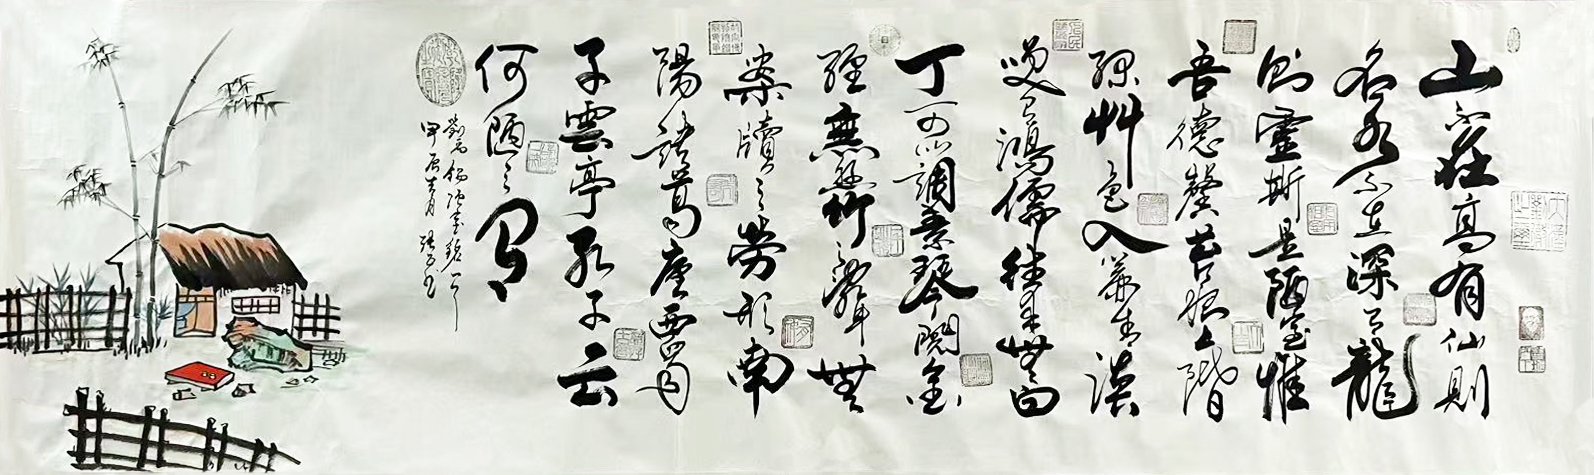 山不在高有仙則
名水不在深有龍
則靈斯是陋室惟
吾德馨苔痕上階
綠艸色入簾青談
笑有鴻儒往來無白
丁可以調素琴閱金
經無絲竹之亂耳無
案牘之勞形南
陽諸葛廬西蜀
子雲亭孔子云
何陋之有
劉禹錫陋室銘一首
甲辰 月